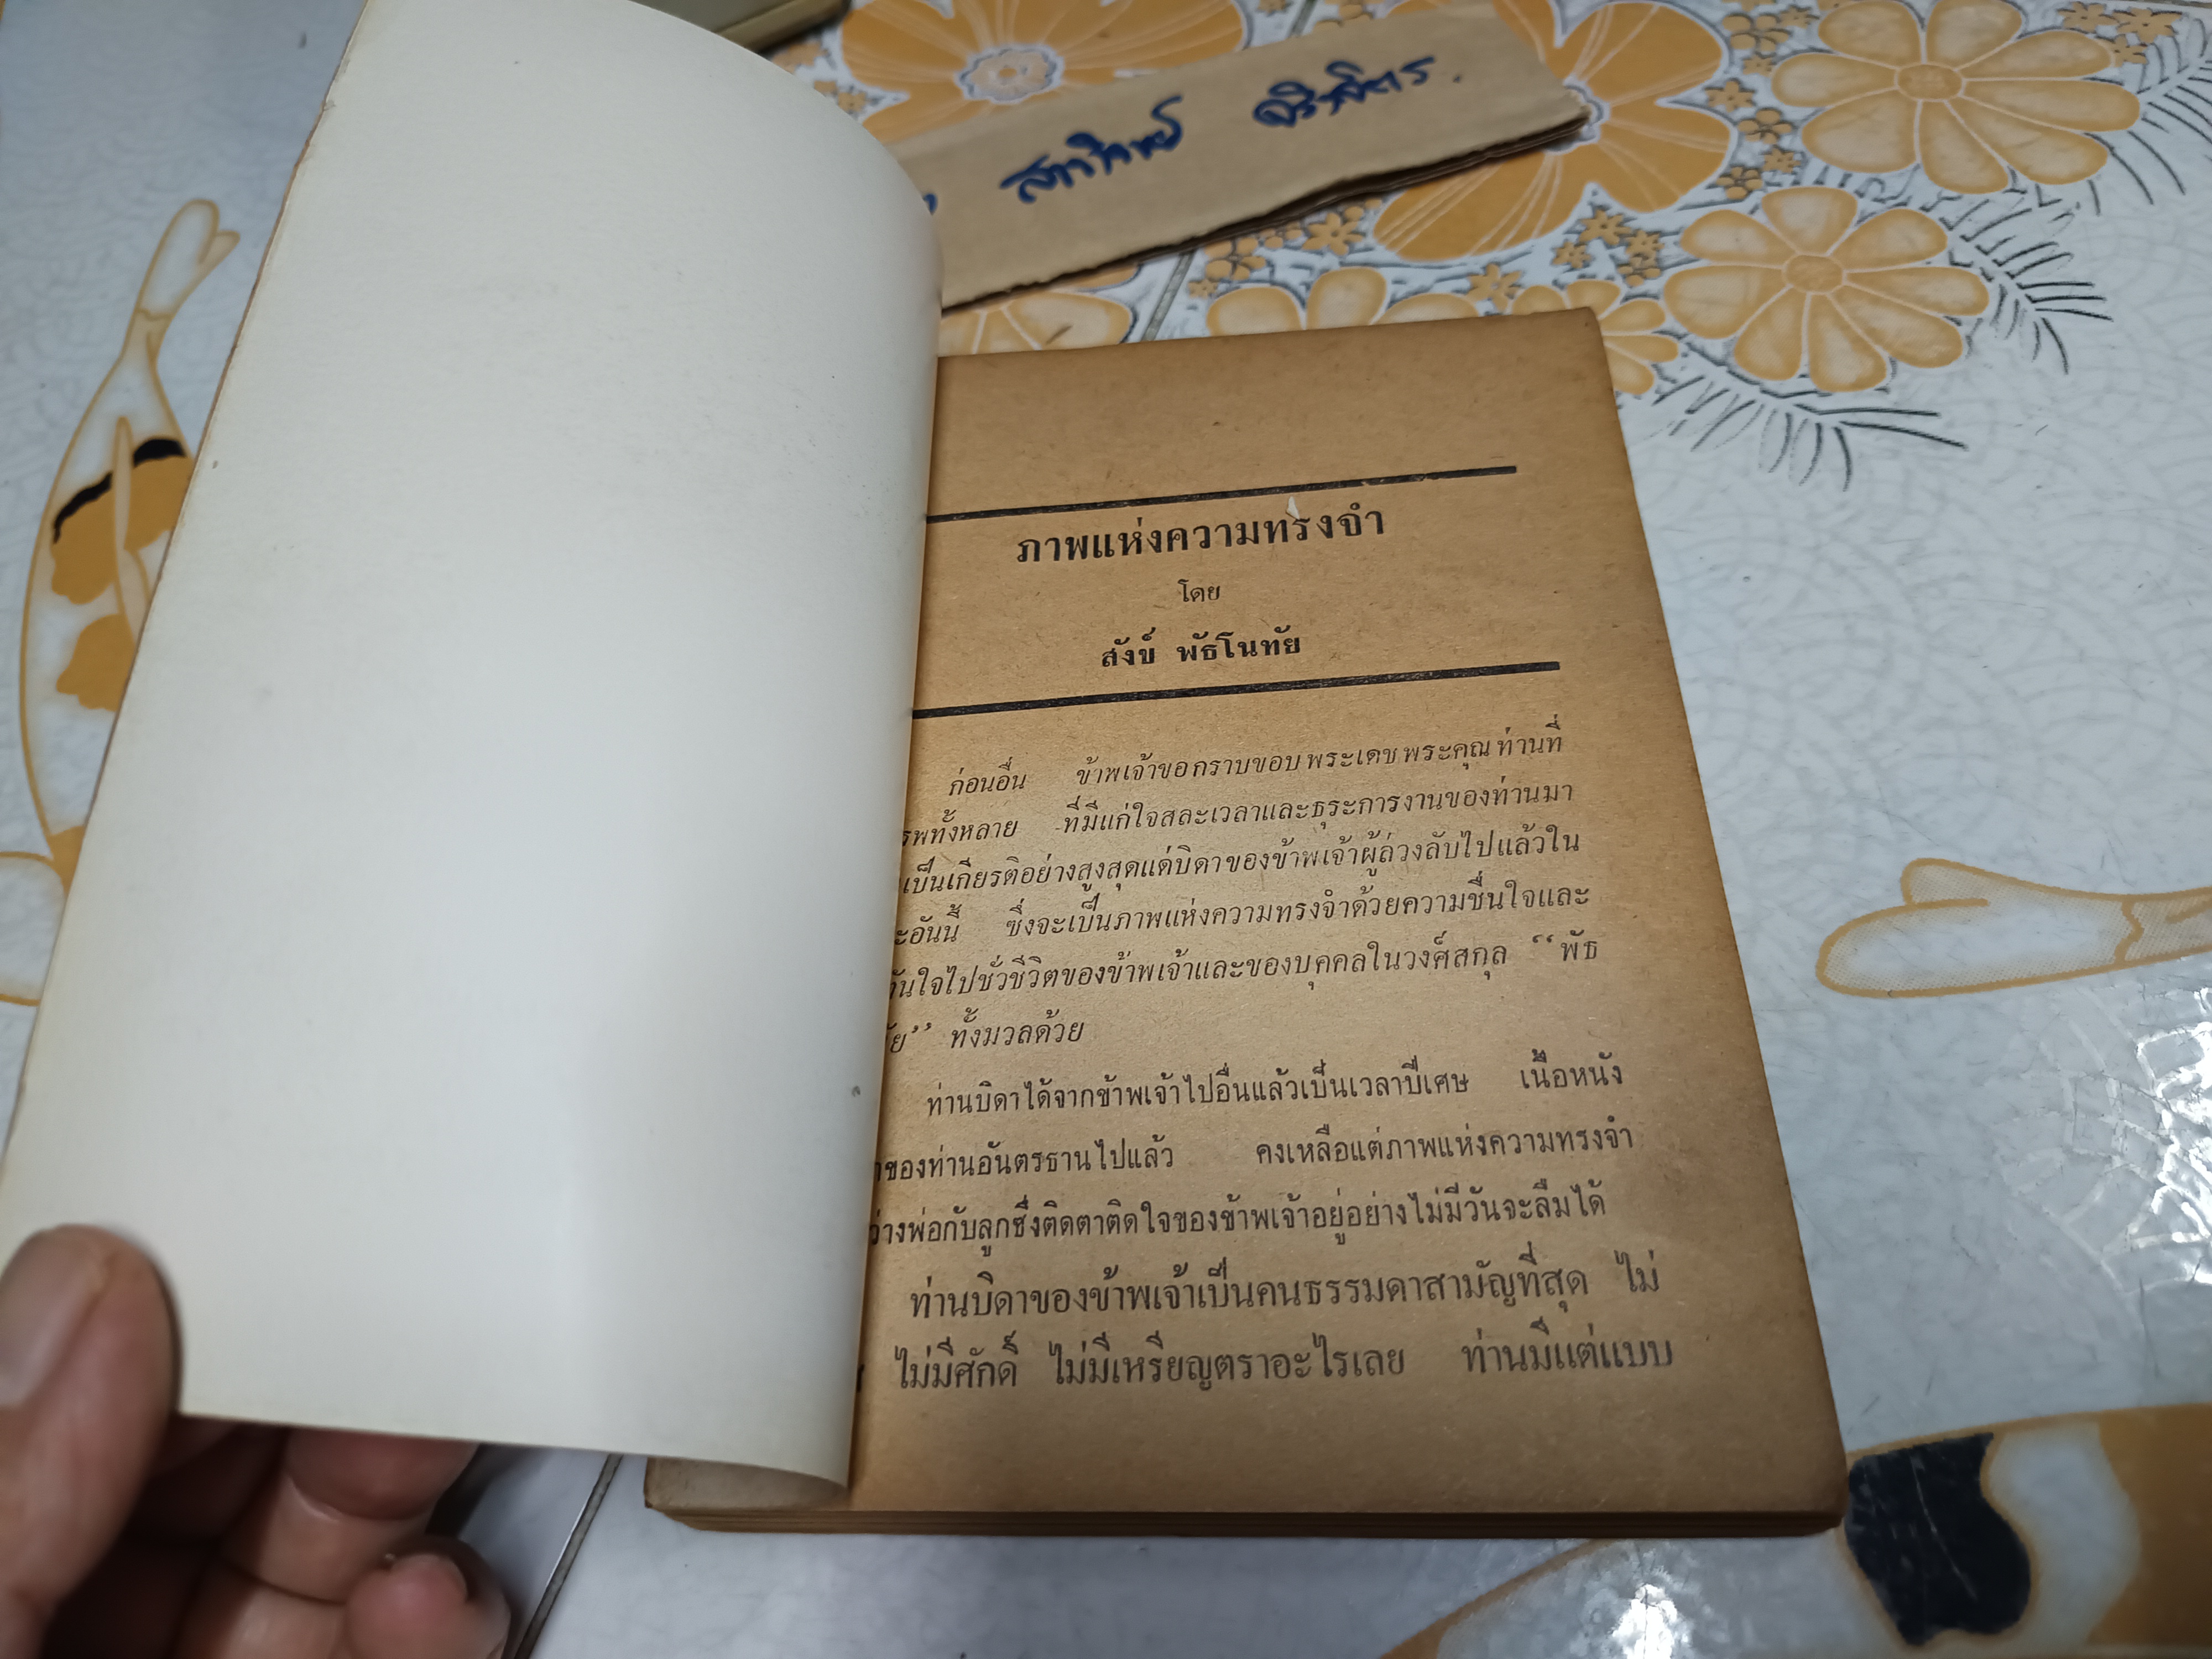 สาทิตย์
ภาพแห่งความทรงจำ
โดย
สังข์ พัธโนทัย
ก่อนอื่น ข้าพเจ้าขอกราบขอบพระเดชพระคุณท่านที่
รพทั้งหลาย ที่มีแก่ใจสละเวลาและธุระการงานของท่านมา
เป็นเกียรติอย่างสูงสุดแด่บิดาของข้าพเจ้าผู้ล่วงลับไปแล้วใน
ะอันนี้ ซึ่งจะเป็นภาพแห่งความทรงจำด้วยความชื่นใจและ
ันใจไปชั่วชีวิตของข้าพเจ้าและของบุคคลในวงศ์สกุล “พัธ
ัย” ทั้งมวลด้วย
ท่านบิดาได้จากข้าพเจ้าไปอื่นแล้วเป็นเวลาปีเศษ เนื้อหนัง
ของท่านอันตรธานไปแล้ว คงเหลือแต่ภาพแห่งความทรงจำ
ว่างพ่อกับลูกซึ่งติดตาติดใจของข้าพเจ้าอยู่อย่างไม่มีวันจะลืมได้
ท่านบิดาของข้าพเจ้าเป็นคนธรรมดาสามัญที่สุด ไม่
ไม่มีศักดิ์ ไม่มีเหรียญตราอะไรเลย ท่านมีแต่แบบ